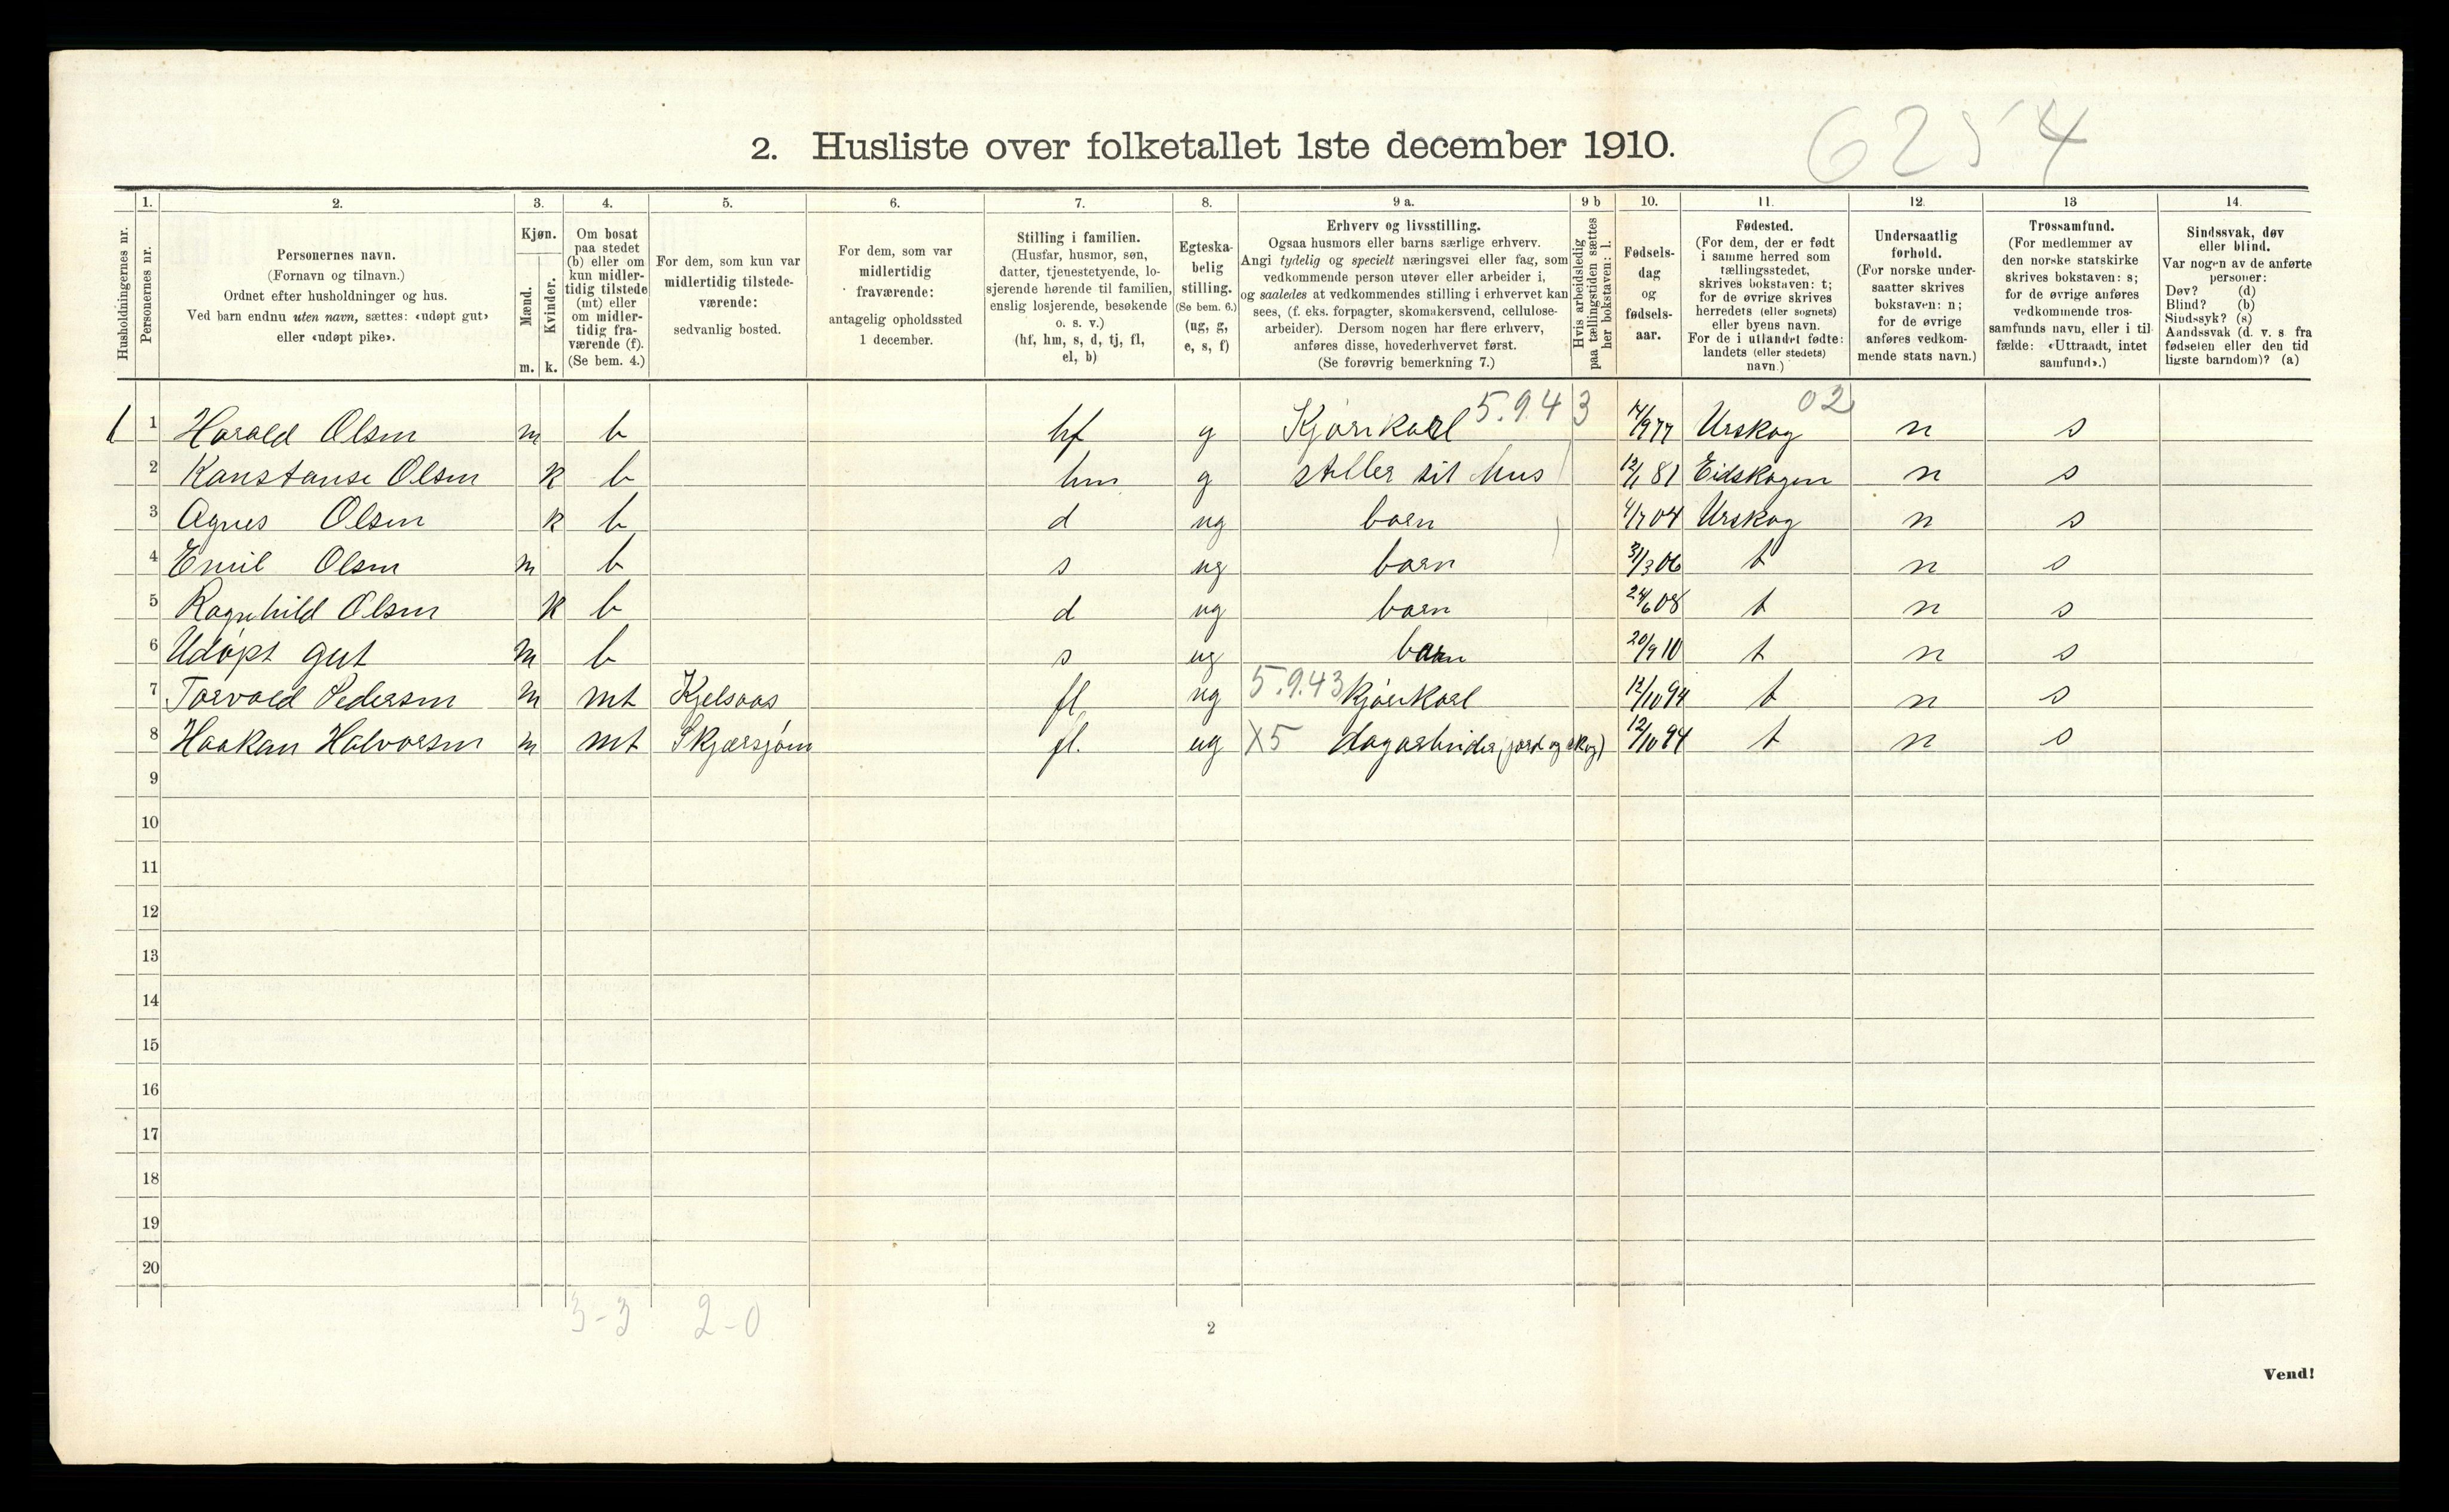 2. Husliste over folketallet 1ste december 1910.
6254
Husholdningernes nr.
1.
Personernes nr.
2.
Personernes navn.
(Fornavn og tilnavn.)
Ordnet efter husholdninger og hus.
Ved barn endnu uten navn, sættes: «udøpt gut»
eller «udøpt pike».
3.
Kjøn.
Mænd.
Kvinder.
m. k.
4.
Om bosat
paa stedet
(b) eller om
kun midler-
tidig tilstede
(mt) eller
om midler-
tidig fra-
værende (f).
(Se bem. 4.)
5.
For dem, som kun var
midlertidig tilstede-
værende:
sedvanlig bosted.
6.
For dem, som var
midlertidig
fraværende:
antagelig opholdssted
1 december.
7.
Stilling i familien.
(Husfar, husmor, søn,
datter, tjenestetyende, lo-
sjerende hørende til familien,
enslig losjerende, besøkende
o. s. v.)
(hf, hm, s, d, tj, fl,
el, b)
8.
Egteska-
belig
stilling.
(Se bem. 6.)
(ug, g,
e, s, f)
9 a.
Erhverv og livsstilling.
Ogsaa husmors eller barns særlige erhverv.
Angi tydelig og specielt næringsvei eller fag, som
vedkommende person utøver eller arbeider i,
og saaledes at vedkommendes stilling i erhvervet kan
sees, (f. eks. forpagter, skomakersvend, cellulose-
arbeider). Dersom nogen har flere erhverv,
anføres disse, hovederhvervet først.
(Se forøvrig bemerkning 7.)
9 b
Hvis arbeidsledig
paa tællingstiden sættes
her bokstaven: l.
10.
Fødsels-
dag
og
fødsels-
aar.
11.
Fødested.
(For dem, der er født
i samme herred som
tællingsstedet,
skrives bokstaven: t;
for de øvrige skrives
herredets (eller sognets)
eller byens navn.
For de i utlandet fødte:
landets (eller stedets)
navn.)
12.
Undersaatlig
forhold.
(For norske under-
saatter skrives
bokstaven: n;
for de øvrige
anføres vedkom-
mende stats navn.)
13
Trossamfund.
(For medlemmer av
den norske statskirke
skrives bokstaven: s;
for de øvrige anføres
vedkommende tros-
samfunds navn, eller i til-
fælde: «Uttraadt, intet
samfund».)
14.
Sindssvak, døv
eller blind.
Var nogen av de anførte
personer:
Døv? (d)
Blind? (b)
Sindssyk? (s)
Aandssvak (d. v. s. fra
fødselen eller den tid-
ligste barndom)? (a)
1 1 Harald Olsen m b hf g Kjørekarl 5.9.43 14/9 77 Urskog 02 n s
2 Konstanse Olsen k b hm g steller sit hus 12/1 81 Eidskogen n s
3 Agnes Olsen k b d ug barn 4/7 04 Urskog n s
4 Emil Olsen m b s ug barn 31/3 06 t n s
5 Ragnhild Olsen k b d ug barn 24/6 08 t n s
6 Udøpt gut m b s ug barn 20/9 10 t n s
7 Torvald Pedersen m mt Kjelsaas fl. ug 5.9.43 kjørekarl 12/10 94 t n s
8 Haakan Halvorsen m mt Skjærsjøen fl. ug X5 dagarbeider (jord og skog) 12/10 94 t n s
9
10
11
12
13
14
15
16
17
18
19
20
3-3 2-0
2
Vend!